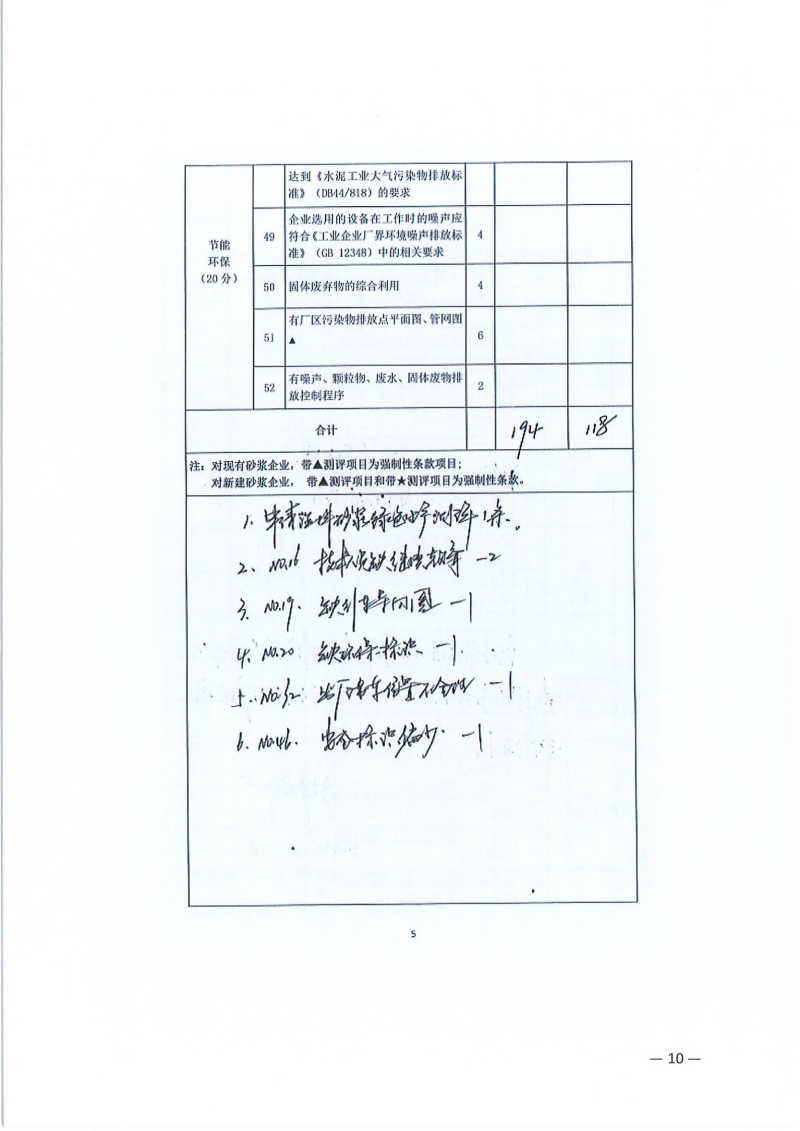 达到《水泥工业大气污染物排放标
准》（DB44/818）的要求
节能
环保
（20 分）
49
企业选用的设备在工作时的噪声应
符合《工业企业厂界环境噪声排放标
准》（GB 12348）中的相关要求
4
50
固体废弃物的综合利用
4
51
有厂区污染物排放点平面图、管网图
▲
6
52
有噪声、颗粒物、废水、固体废物排
放控制程序
2
合计
194
118
注：对现有砂浆企业，带▲测评项目为强制性条款项目；
对新建砂浆企业， 带▲测评项目和带★测评项目为强制性条款。
1、砂浆绿色
2、No.16 技术 缺继续教育 -2
3、No.19、缺 车间图 -1
4、No.20 缺环保标识、-1
5、No.32 出厂 不合理 -1
6、No.46、安全标识偏少、-1
5
— 10 —